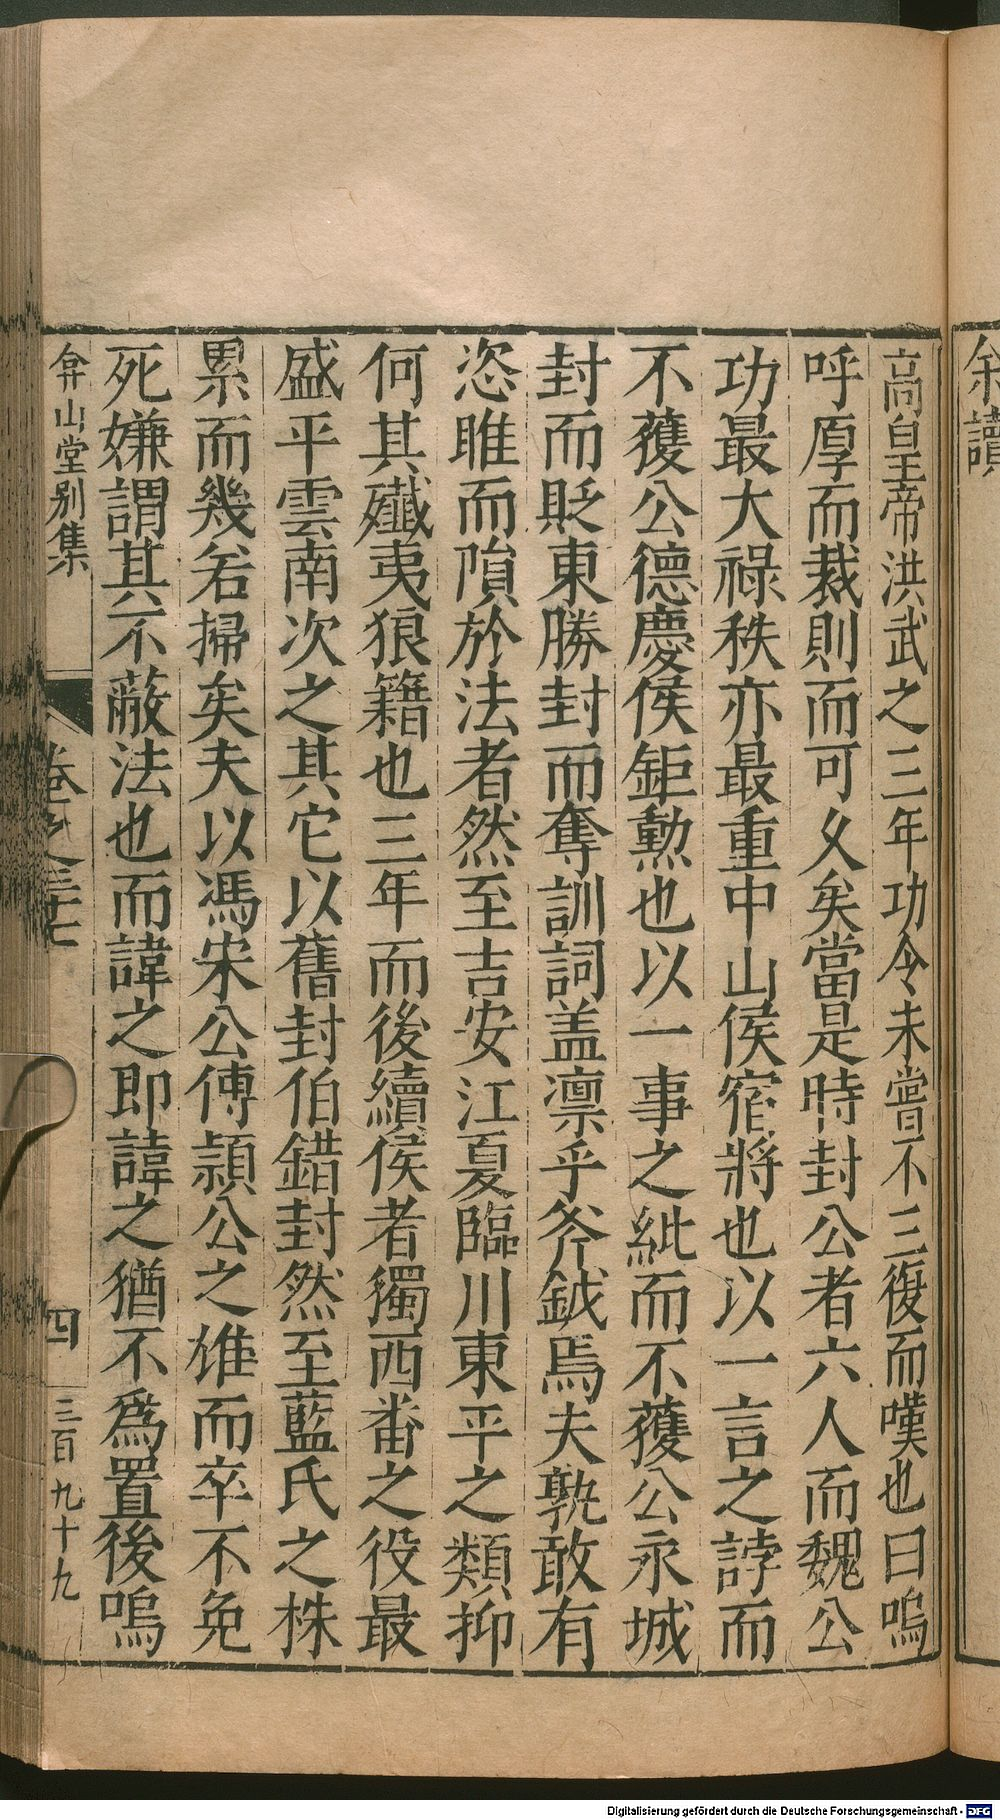 余讀
高皇帝洪武之三年功令未嘗不三復而嘆也曰嗚
呼厚而裁則而可乂矣當是時封公者六人而魏公
功最大祿秩亦最重中山侯宿將也以一言之誖而
不獲公德慶侯鉅勲也以一事之紕而不獲公永城
封而貶東勝封而奪訓詞盖凛乎斧鉞焉夫孰敢有
恣睢而隕於法者然至吉安江夏臨川東平之類抑
何其殲夷狼籍也三年而後續侯者獨西番之役最
盛平雲南次之其它以舊封伯錯封然至藍氏之株
累而幾若掃矣夫以馮宋公傅潁公之雄而卒不免
死嫌謂其不蔽法也而諱之即諱之猶不爲置後嗚
弇山堂别集
卷之三十七
四
三百九十九
Digitalisierung gefördert durch die Deutsche Forschungsgemeinschaft - DFG